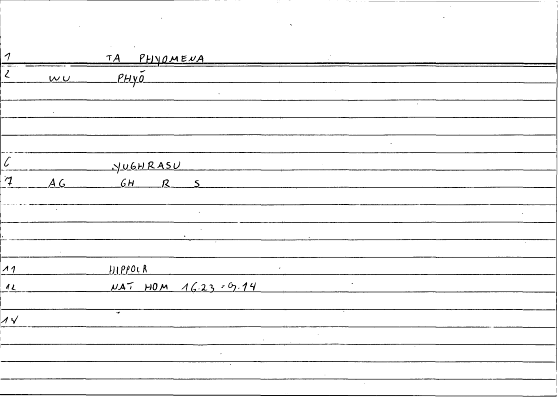 1 TA PHYOMENA
2 WU PHYŌ
6 YUGHRASU
7 AG GH R S
11 HIPPOCR
12 NAT HOM 16.23 - 9.14
14